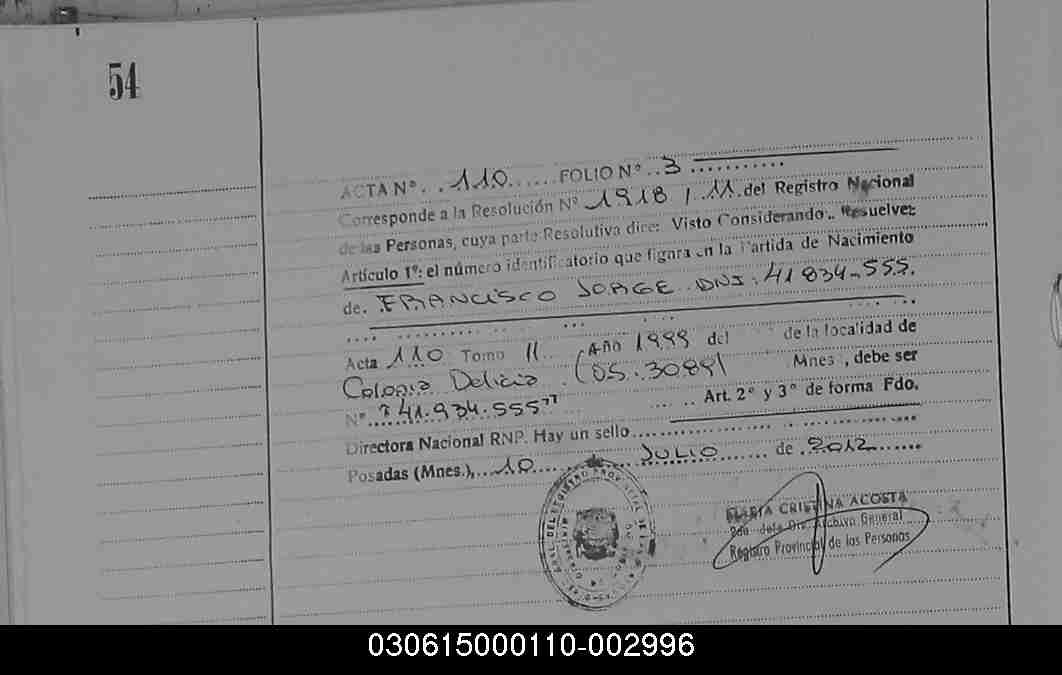 54
ACTA Nº. 110 FOLIO Nº 3
Corresponde a la Resolución Nº 1918 / 11 del Registro Nacional
de las Personas, cuya parte Resolutiva dice: Visto Considerando.. Resuelve:
Artículo 1º: el número identificatorio que figura en la Partida de Nacimiento
de. FRANCISCO JORGE DNI: 41834.555.
Acta 110 Tomo II Año 1999 del de la localidad de
Colonia Delicia (05.3089) Mnes , debe ser
Nº "41.934.555" Art. 2º y 3º de forma Fdo.
Directora Nacional RNP. Hay un sello
Posadas (Mnes.), 10 JULIO de 2012
MARIA CRISTINA ACOSTA
Archivo General
Registro Provincial de las Personas
030615000110-002996